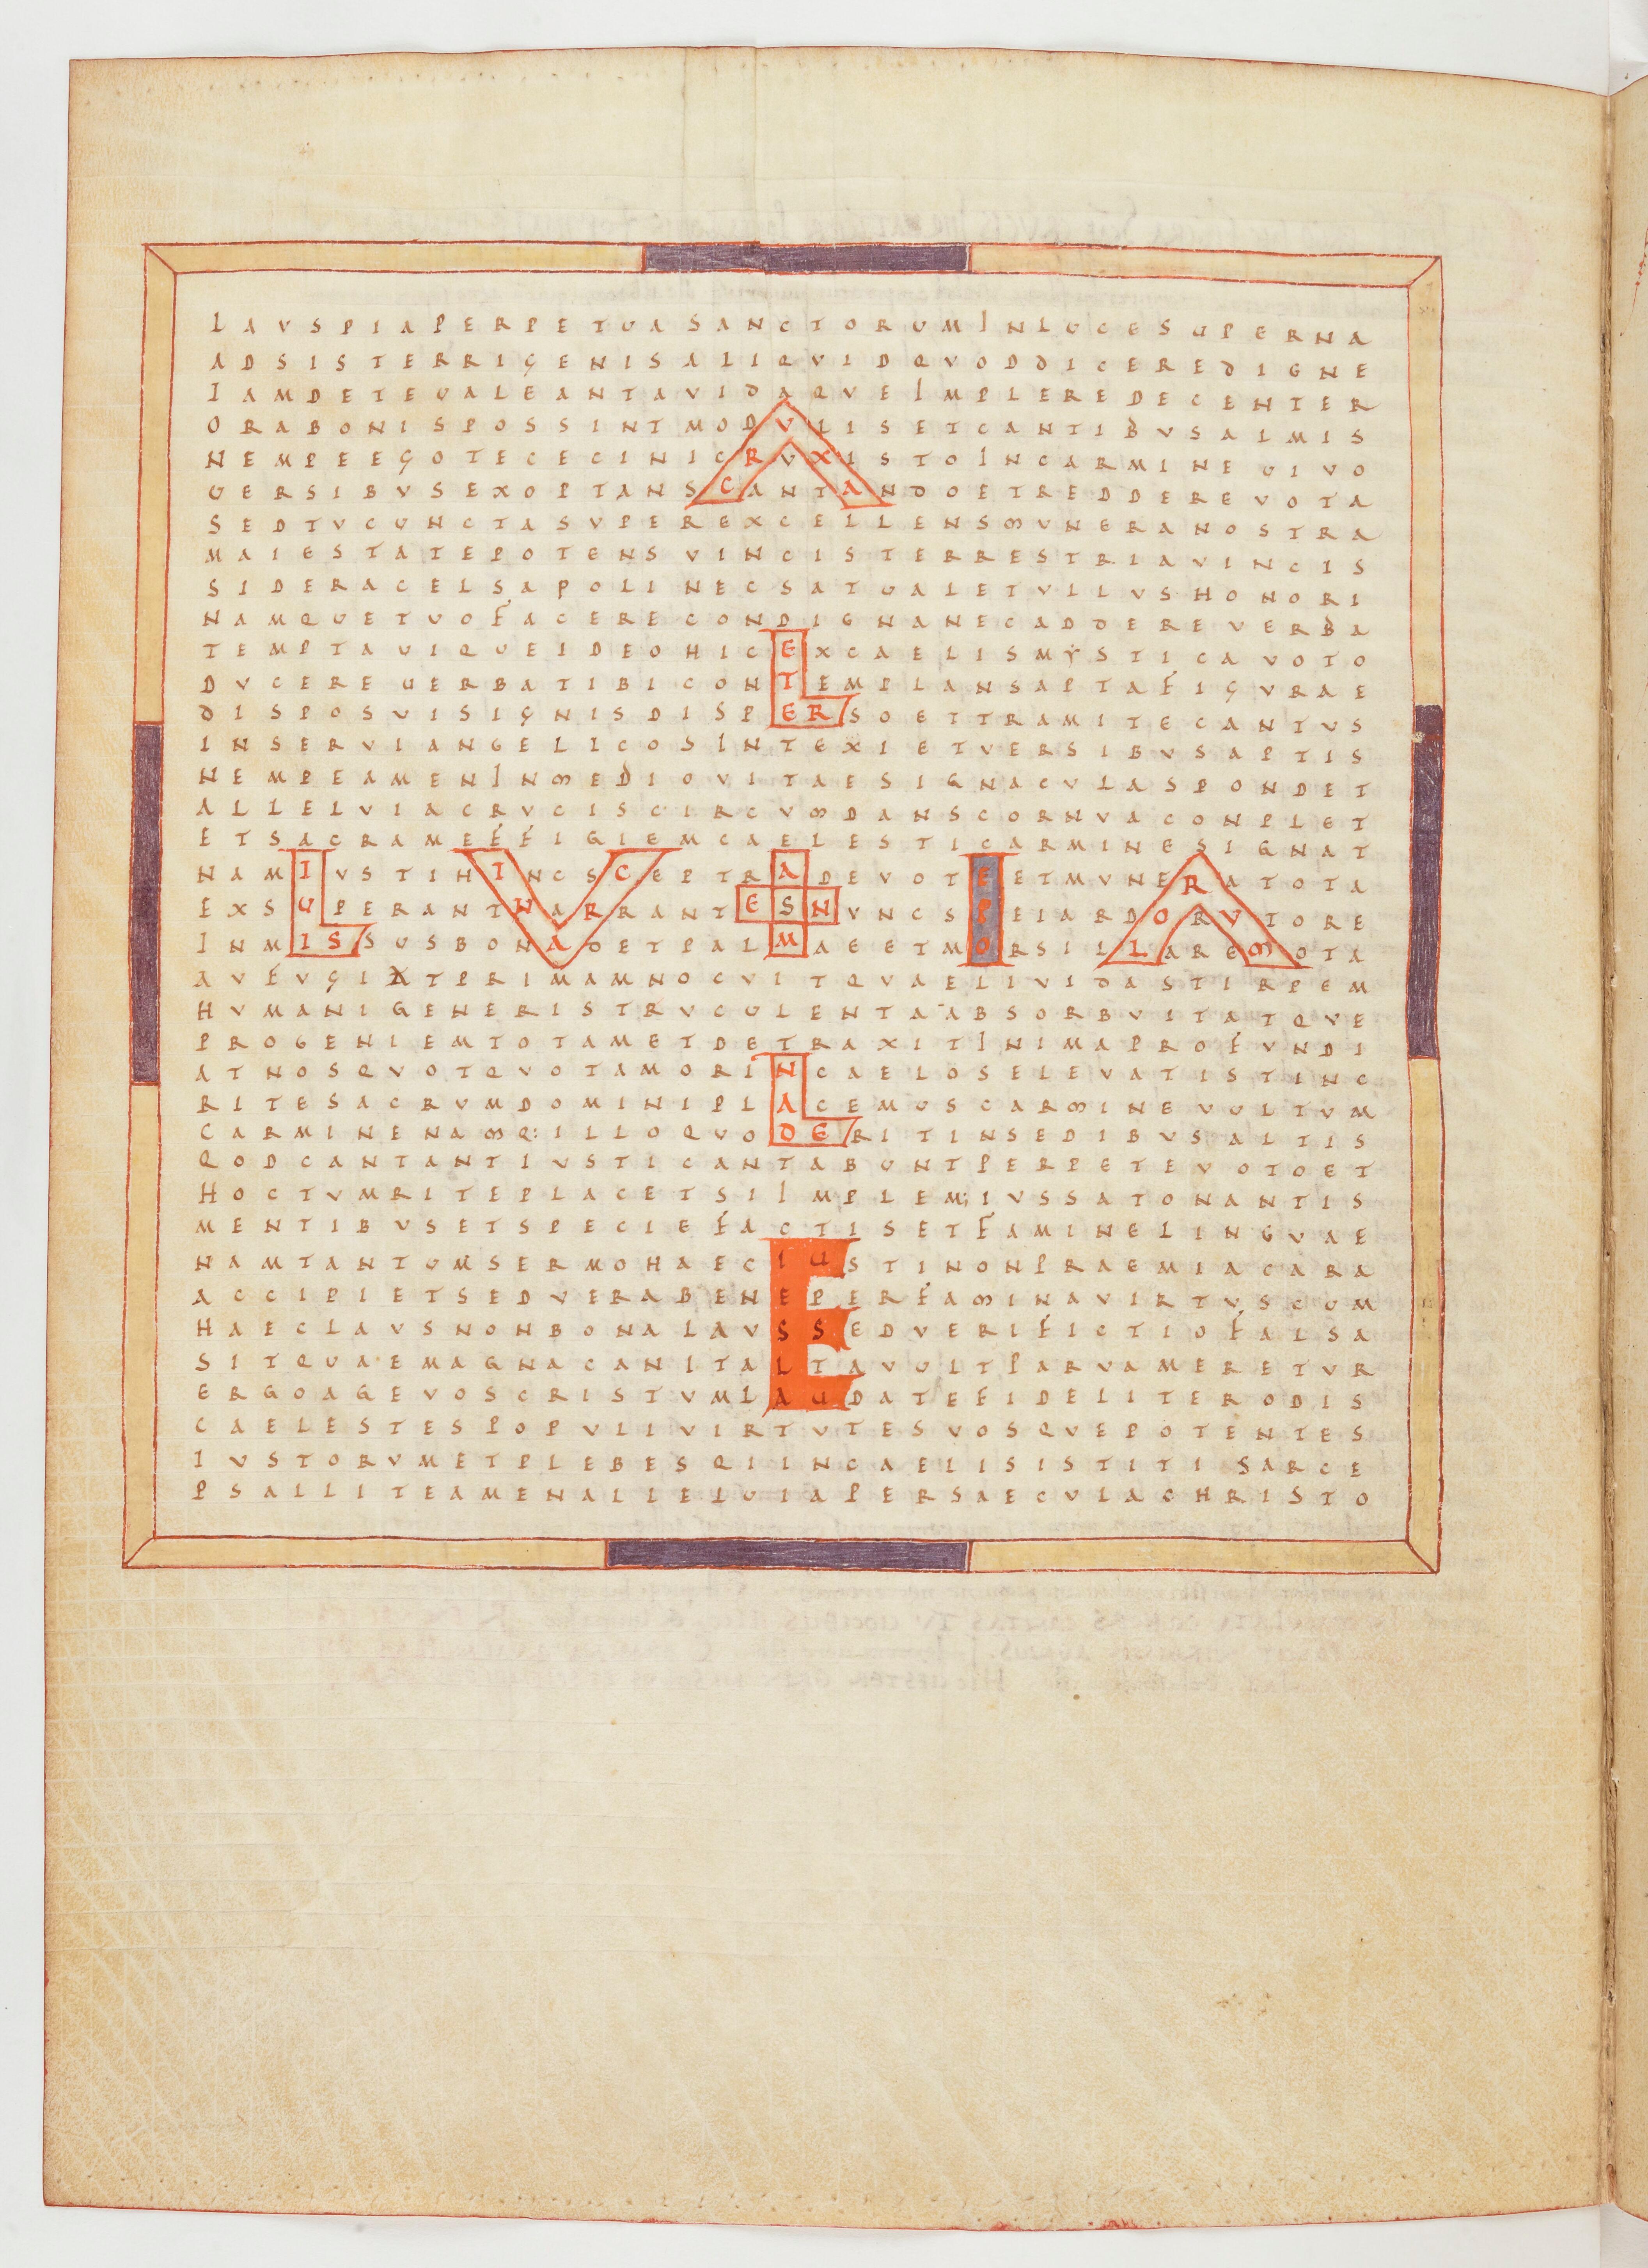 LAVSPIAPERPETUASANCTORUMINLUCESUPERNA
ADSISTERRIGENISALIQVIDQVODDICEREDIGNE
IAMDETEUALEANTAVIDAQVEIMPLEREDECENTER
ORABONISPOSSINTMODVLISETCANTIBVSALMIS
NEMPEEGOTECECINICRVXISTOINCARMINEUIVO
UERSIBVSEXOPTANSCANTANDOETREDDEREVOTA
SEDTVCUNCTASVPEREXCELLENSMVNERANOSTRA
MAIESTATEPOTENSVINCISTERRESTRIAVINCIS
SIDERACELSAPOLINECSATUALETVLLVSHONORI
NAMQUETVOFACERECONDIGNANECADDEREVERBA
TEMPTAUIQUEIDEOHICEXCAELISMYSTICAVOTO
DVCEREUERBATIBICONTEMPLANSAPTAFIGVRAE
DISPOSVISIGNISDISPERSOETTRAMITECANTVS
INSERVIANGELICOSINTEXIETVERSIBVSAPTIS
NEMPEAMENINMEDIOVITAESIGNACVLASPONDET
ALLELVIACRVCISCIRCVMDANSCORNVACONPLET
ETSACRAMEFFIGIEMCAELESTICARMINESIGNAT
NAMIVSTIHINCSCEPTRADEVOTEETMVNERATOTA
EXSUPERANTNARRANTESNVNCSPEIARDORVTORE
INMISSUSBONADETPALMAEETMORSILLAREMOTA
AVFVGIATPRIMAMNOCVITQVAELIVIDASTIRPEM
HVMANIGENERISTRVCULENTAABSORBVITATQVE
PROGENIEMTOTAMETDETRAXITINIMAPROFVNDI
ATNOSQVOTQVOTAMORINCAELOSELEVATISTINC
RITESACRVMDOMINIPLACEMUSCARMINEVULTVM
CARMINENAMQ:ILLOQVODERITINSEDIBVSALTIS
QODCANTANTIVSTICANTABUNTPERPETEVOTOET
HOCTVMRITEPLACETSIIMPLEM;IVSSATONANTIS
MENTIBVSETSPECIEFACTISETFAMINELINGVAE
NAMTANTUMSERMOHAECIUSTINONPRAEMIACARA
ACCIPIETSEDVERABENEPERFAMINAVIRTVSCUM
HAECLAVSNONBONALAVSSEDVERIFICTIOFALSA
SITQUAEMAGNACANITALTAVULTPARVAMERETVR
ERGOAGEVOSCRISTVMLAUDATEFIDELITERODIS
CAELESTESPOPVLIVIRTVTESVOSQVEPOTENTES
IVSTORVMETPLEBESQIINCAELISISTITISARCE
PSALLITEAMENALLELUIAPERSAECVLACHRISTO